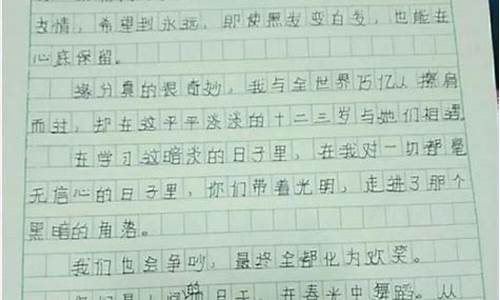 友情，希望到永远，即使黑发变白发，也能在
心底保留。
缘分真的很奇妙，我与全世界75亿人擦肩
而过，却在这平平淡淡的十二三岁与她们相遇
在学习这暗淡的日子里，在我对一切都毫
无信心的日子里，你们带着光明，走进了那个
黑暗的角落。
我们也会争吵，最终全都化为欢笑。
的 天，在春光中舞蹈。从